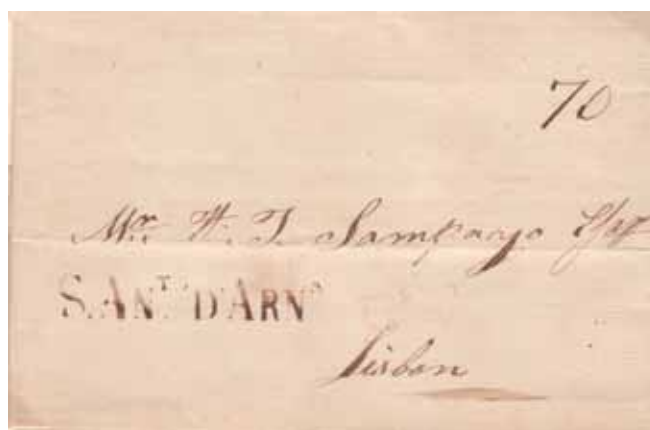 70
Mr. H. T. Sampayo Esqr
S. ANT.º D'ARNº
Lisbon